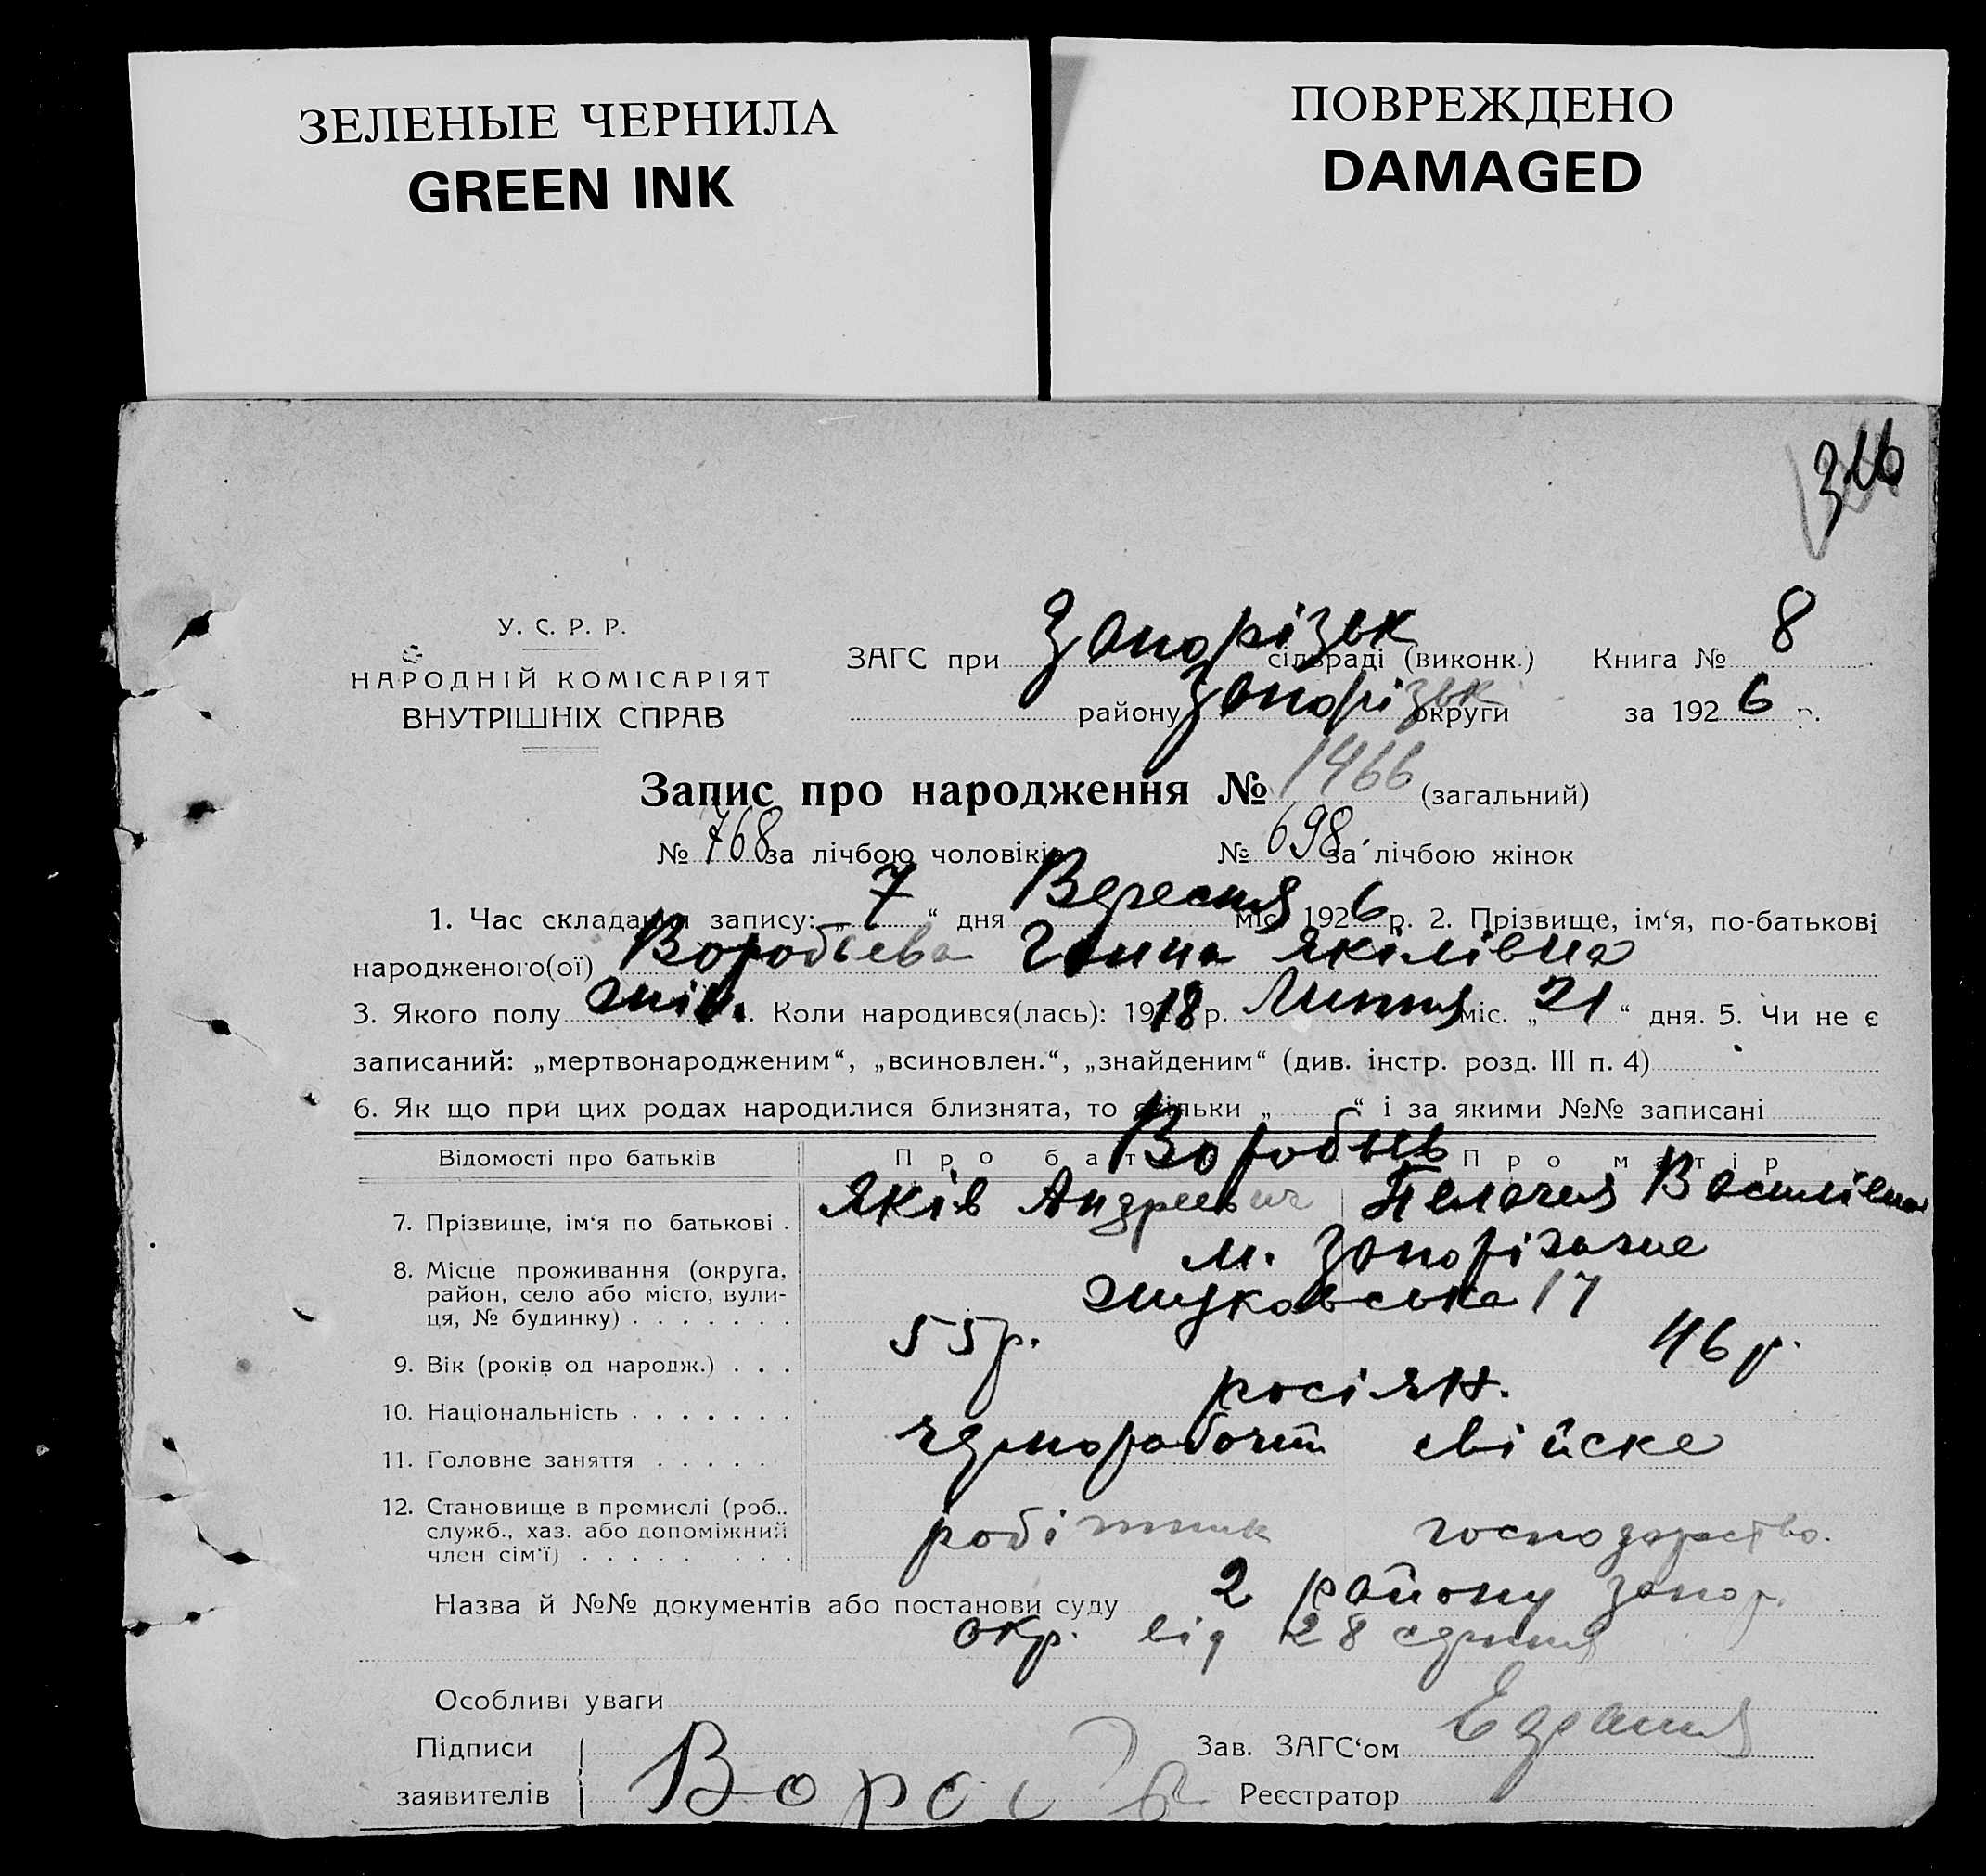 ЗЕЛЕНЫЕ ЧЕРНИЛА
GREEN INK
ПОВРЕЖДЕНО
DAMAGED
316
У. С. Р. Р.
НАРОДНІЙ КОМІСАРІЯТ
ВНУТРІШНІХ СПРАВ
ЗАГС при Запорізьк сільраді (виконк.) Книга № 8
району Запорізьк округи за 1926 р.
Запис про народження № 1466 (загальний)
№ 768 за лічбою чоловіків № 698 за лічбою жінок
1. Час складання запису: „7“ дня Вересня міс. 1926 р. 2. Прізвище, ім‘я, по-батькові
народженого(ої) Воробьева Ганна Яківлівна
3. Якого полу жін. Коли народився(лась): 1918 р. Липня міс. „21“ дня. 5. Чи не є
записаний: „мертвонародженим“, „всиновлен.“, „знайденим“ (див. інстр. розд. III п. 4)
6. Як що при цих родах народилися близнята, то скільки „ “ і за якими №№ записані
Відомості про батьків Про батька Воробьев Про матір
7. Прізвище, ім‘я по батькові . Яків Андреевич Пелагея Василівна
8. Місце проживання (округа, район, село або місто, вулиця, № будинку) м. Запоріжжє
Жуковська 17
9. Вік (років од народж.) . . . 55 р. 46 р.
10. Національність росіян.
11. Головне заняття чернорабочий
12. Становище в промислі (роб., служб., хаз. або допоміжний член сім‘ї) робітник господарство.
Назва й №№ документів або постанови суду 2 району Запор.
окр. від 28 серпня
Особливі уваги
Підписи
заявителів
Зав. ЗАГС‘ом
Реєстратор